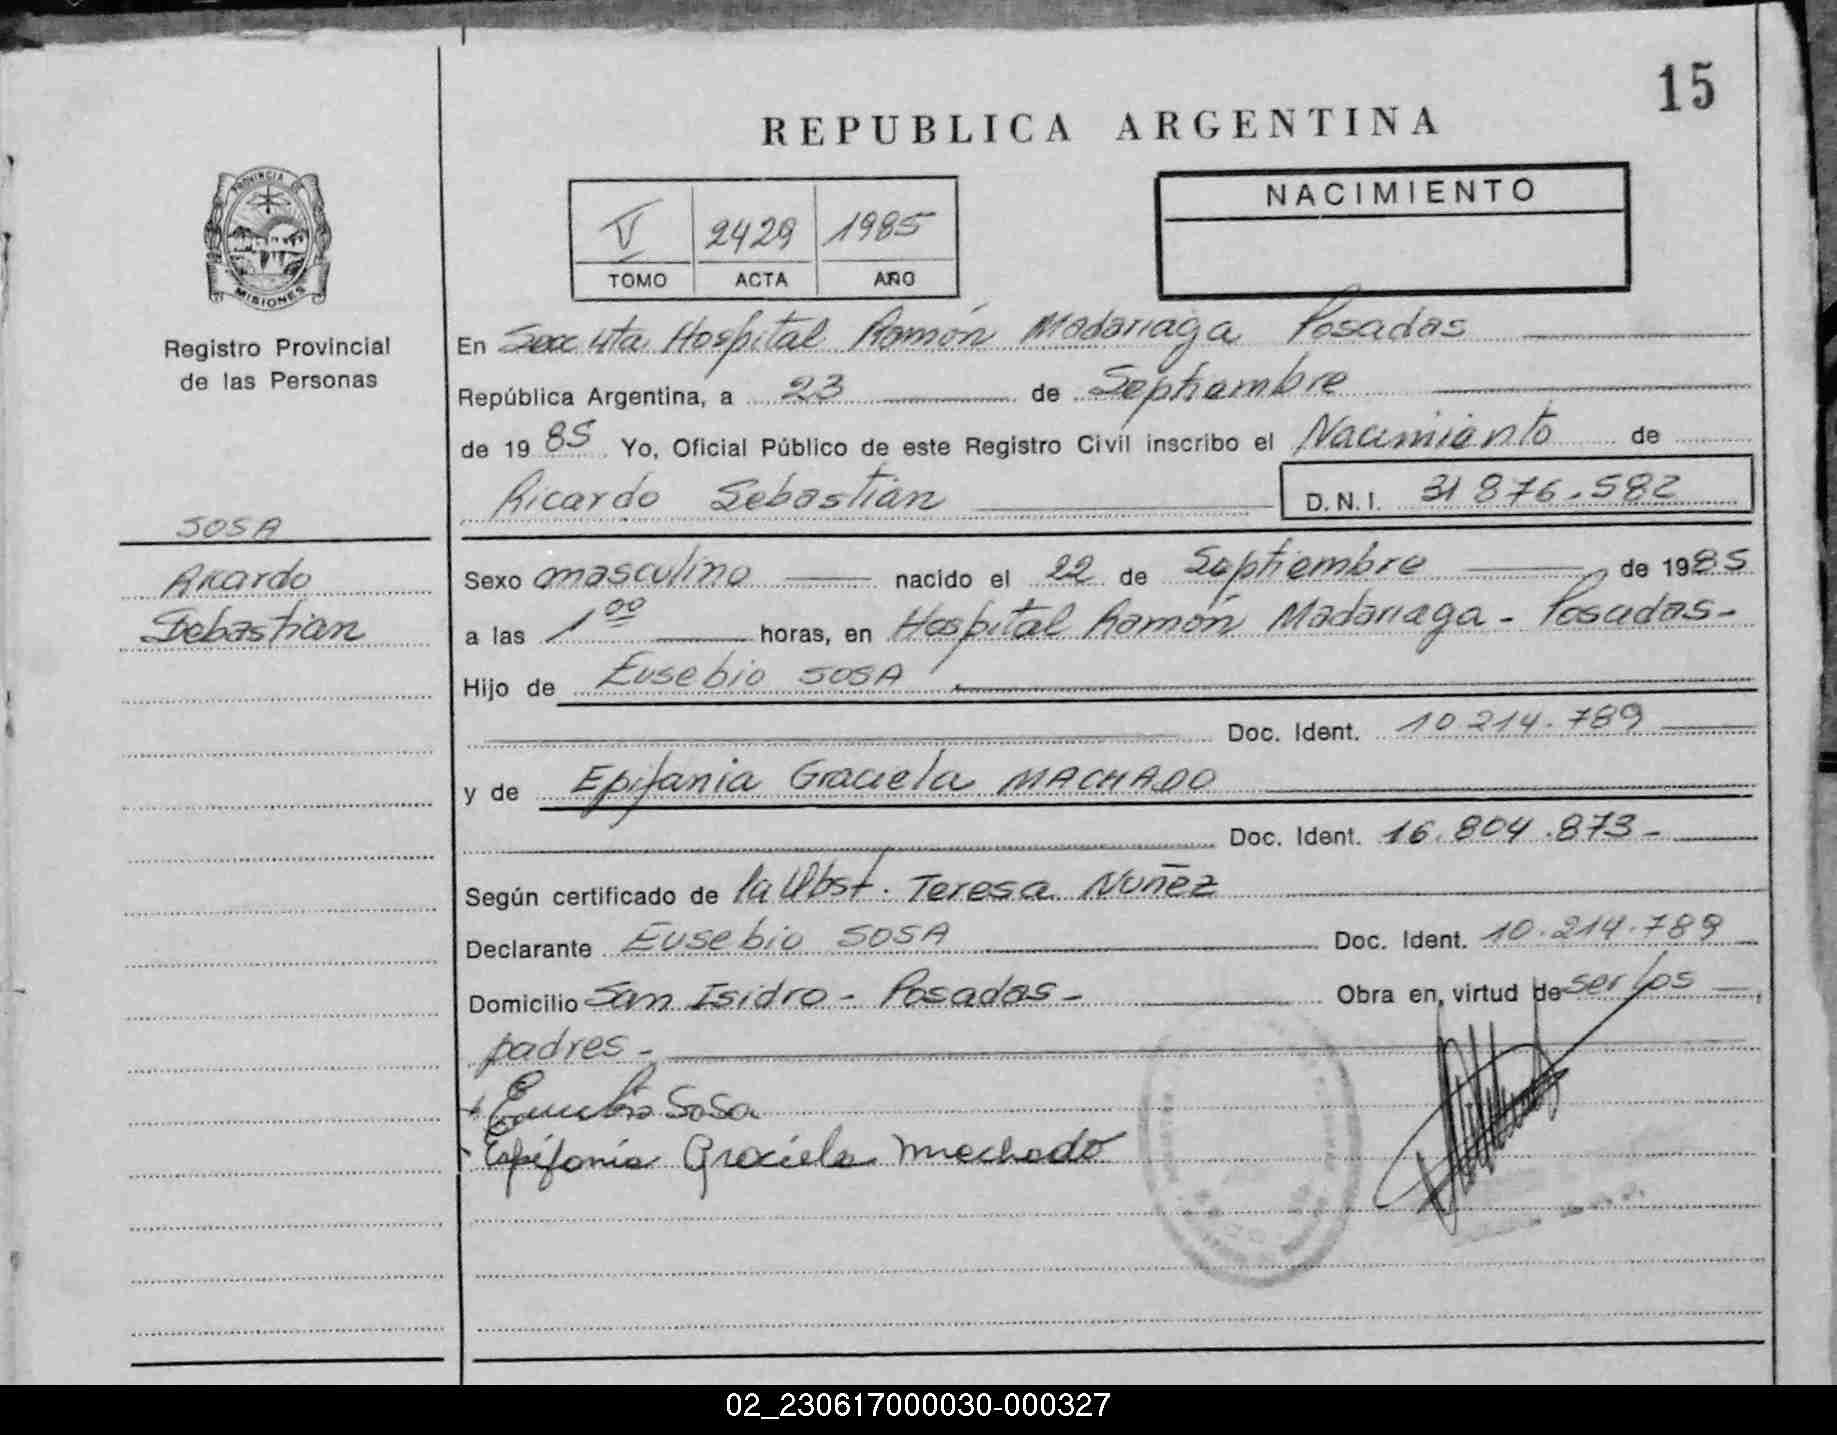 15
REPUBLICA ARGENTINA
PROVINCIA DE
MISIONES
Registro Provincial
de las Personas
V 2429 1985
TOMO ACTA AÑO
NACIMIENTO
En Secc 4ta Hospital Ramón Madariaga Posadas
República Argentina, a 23 de Septiembre
de 1985 Yo, Oficial Público de este Registro Civil inscribo el Nacimiento de
Ricardo Sebastián D.N.I. 31 876.582
SOSA
Ricardo
Sebastian
Sexo masculino nacido el 22 de Septiembre de 1985
a las 1 00 horas, en Hospital Ramón Madariaga - Posadas -
Hijo de Eusebio SOSA
Doc. Ident. 10.214.789
y de Epifania Graciela MACHADO
Doc. Ident. 16.804.873 -
Según certificado de la Obst. Teresa Nuñez
Declarante Eusebio SOSA Doc. Ident. 10.214.789
Domicilio San Isidro - Posadas - Obra en virtud de ser los
padres -
Eusebio Sosa
Epifania Graciela Machado
02_230617000030-000327